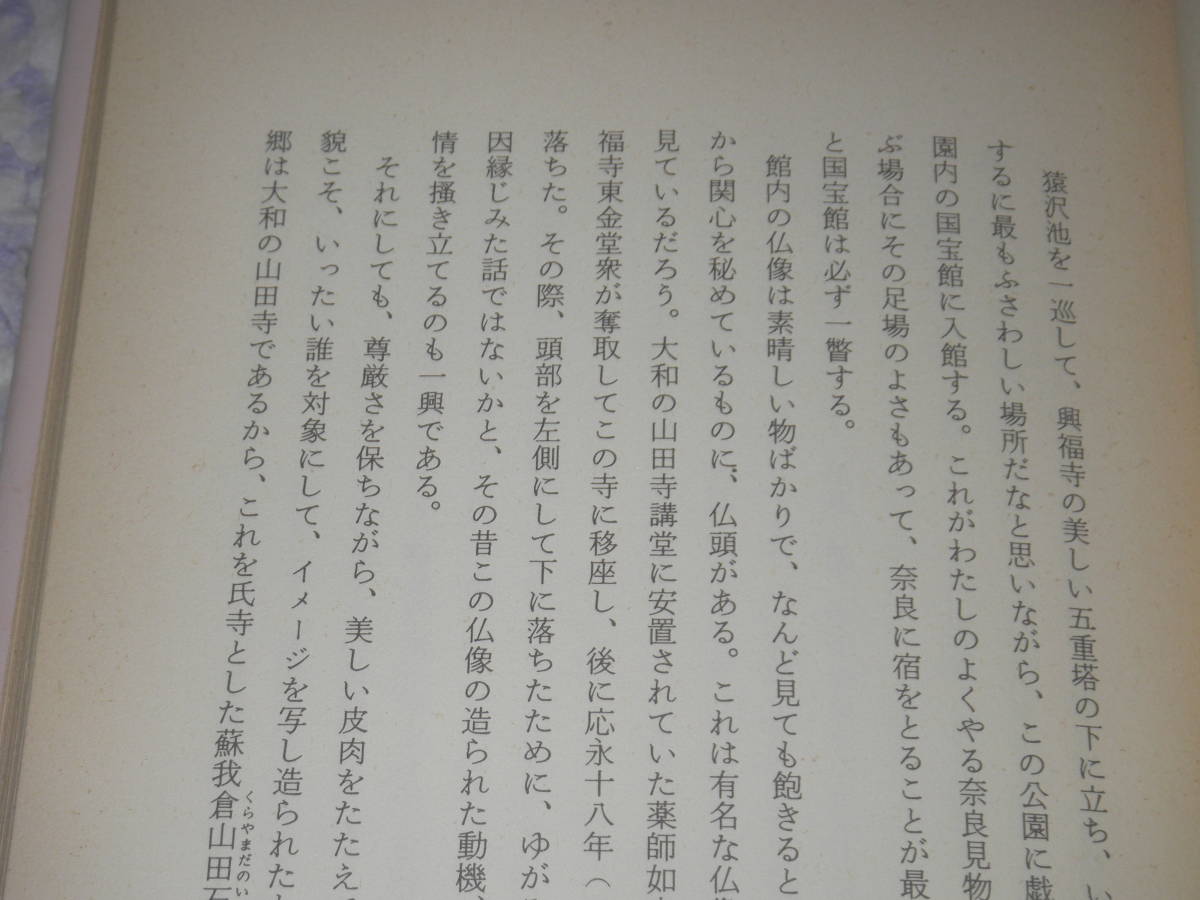 猿沢池を一巡して、興福寺の美しい五重塔の下に立ち、い
するに最もふさわしい場所だなと思いながら、この公園に戯
園内の国宝館に入館する。これがわたしのよくやる奈良見物
ぶ場合にその足場のよさもあって、奈良に宿をとることが最
と国宝館は必ず一瞥する。
館内の仏像は素晴しい物ばかりで、なんど見ても飽きると
から関心を秘めているものに、仏頭がある。これは有名な仏
見ているだろう。大和の山田寺講堂に安置されていた薬師如
福寺東金堂衆が奪取してこの寺に移座し、後に応永十八年（
落ちた。その際、頭部を左側にして下に落ちたために、ゆが
因縁じみた話ではないかと、その昔この仏像の造られた動機
情を掻き立てるのも一興である。
それにしても、尊厳さを保ちながら、美しい皮肉をたたえ
貌こそ、いったい誰を対象にして、イメージを写し造られた
郷は大和の山田寺であるから、これを氏寺とした蘇我倉山田石
くらやまだのい